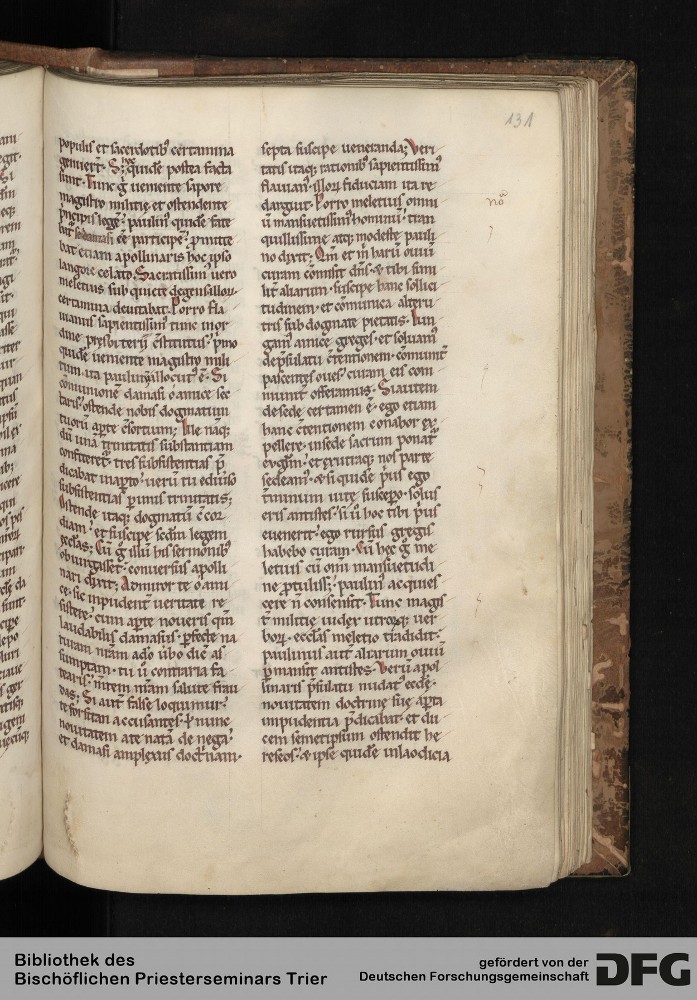 131
populis et sacerdotib; certamina
generet. Si; quidē postea facta
sunt. Tunc g̊ uemente sapore
magistro militie et ostendente
pncipis legē. paulin; quidē fate
bat̄ se damasi cē participē. p̄mitte
bat etiam apollinaris hoc ipso
langore celato. Sacratissim; uero
meletius sub quiete degens illorꝝ
certamina deuitabat. Porro fla
uianus sapientissim; tunc in or
dine presbiterii c̄stitutus. p̄mo
quidē uemente magistro mili
tum ita paulinū allocut; ē. Si
cōmunionē damasi o amice sec
taris. ostende nobis dogmatum
tuorū aꝑte c̄sortium. Ille nāq;
dū unā trinitatis substantiam
confiteret̄. tres subsistentias p̄
dicabat in aꝑto. uerū tu ediuiso
subsistentias ꝑimis trinitatis;
Ostende itaq; dogmatū c̄cor
diam. et suscipe sc̄dm legem
ecc̄las; Cū g̊ illū his sermonib;
obiurgasset. conuersus apolli
nari dixit; Admiror te o ami
ce. sic impudent̄ ueritate re
sistere. cum aꝑte noueris qm̄
laudabilis damasus. ꝑfecte na
turam nr̄am ado ūbo dic̄ as
sumptam. tu ū contraria fa
tearis. mentem nr̄am salute frau
das; Si aut̄ false loquimur
te forsitan accusantes. ł nunc
nouitatem a te natā denega.
et damasi amplexus doctrinam.
septa suscipe ueneranda; Veri
tatis itaq; rationib; sapientissim;
flauian; illorꝝ fiduciam ita re
darguit. Porro meletius omni
ū mansuetissim; hominū. tran
quillissime atq; modeste pauli
no dixit; Qm̄ et m̄ harū ouiū
curam cōmisit dn̄s. & tibi simi
lit̄ aliarum. suscipe hanc sollici
tudinem. et cōmunica alteru
tris sub dogmate pietatis. Iun
gam; amice greges. et soluam;
de p̄sulatu c̄tentionem. cōmunit̄
pascentes oues. curam eis com
munit̄ offeramus. Si autem
de sede certamen ē. ego etiam
hanc c̄tentionem conabor ex
pellere. in sede sacrum ponat̄
euḡlm. et ex utraq; nos parte
sedeam;. & si quidē p̄us ego
t̄minum uite suscepo. solus
eris antistes. si ū hoc tibi p̄us
euenerit. ego rursus gregis
habebo curam. Cū hęc g̊ me
letius cū om̄i mansuetudi
ne ꝓtulisse. paulin; acquies
cere n̄ consensit. Tunc magis
t̄ militie iudex utrorꝝq; uer
borꝝ. ecc̄las meletio tradidit.
paulinus aut̄ aliarum ouiū
ꝑmansit antistes. Verū apol
linaris p̄sulatu nudat; ecc̄lę.
nouitatem doctrine suę aꝑta
impudentia p̄dicabat. et du
cem semetipsum ostendit he
reseos. & ipse quidē in laodicia
nō
Bibliothek des
Bischöflichen Priesterseminars Trier
gefördert von der
Deutschen Forschungsgemeinschaft
DFG